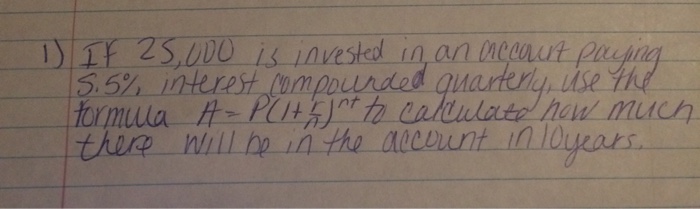 1) If 25,000 is invested in an account paying
5.5% interest compounded quarterly, use the
formula A = P(1+r/n)^nt to calculate how much
there will be in the account in 10 years.